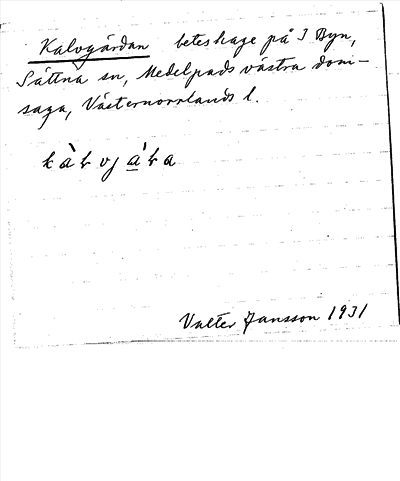 Kalvgårdan beteshage på 3 Byn,
Sättna sn, Medelpads västra dom-
saga, Västernorrlands l.
Valter Jansson 1931